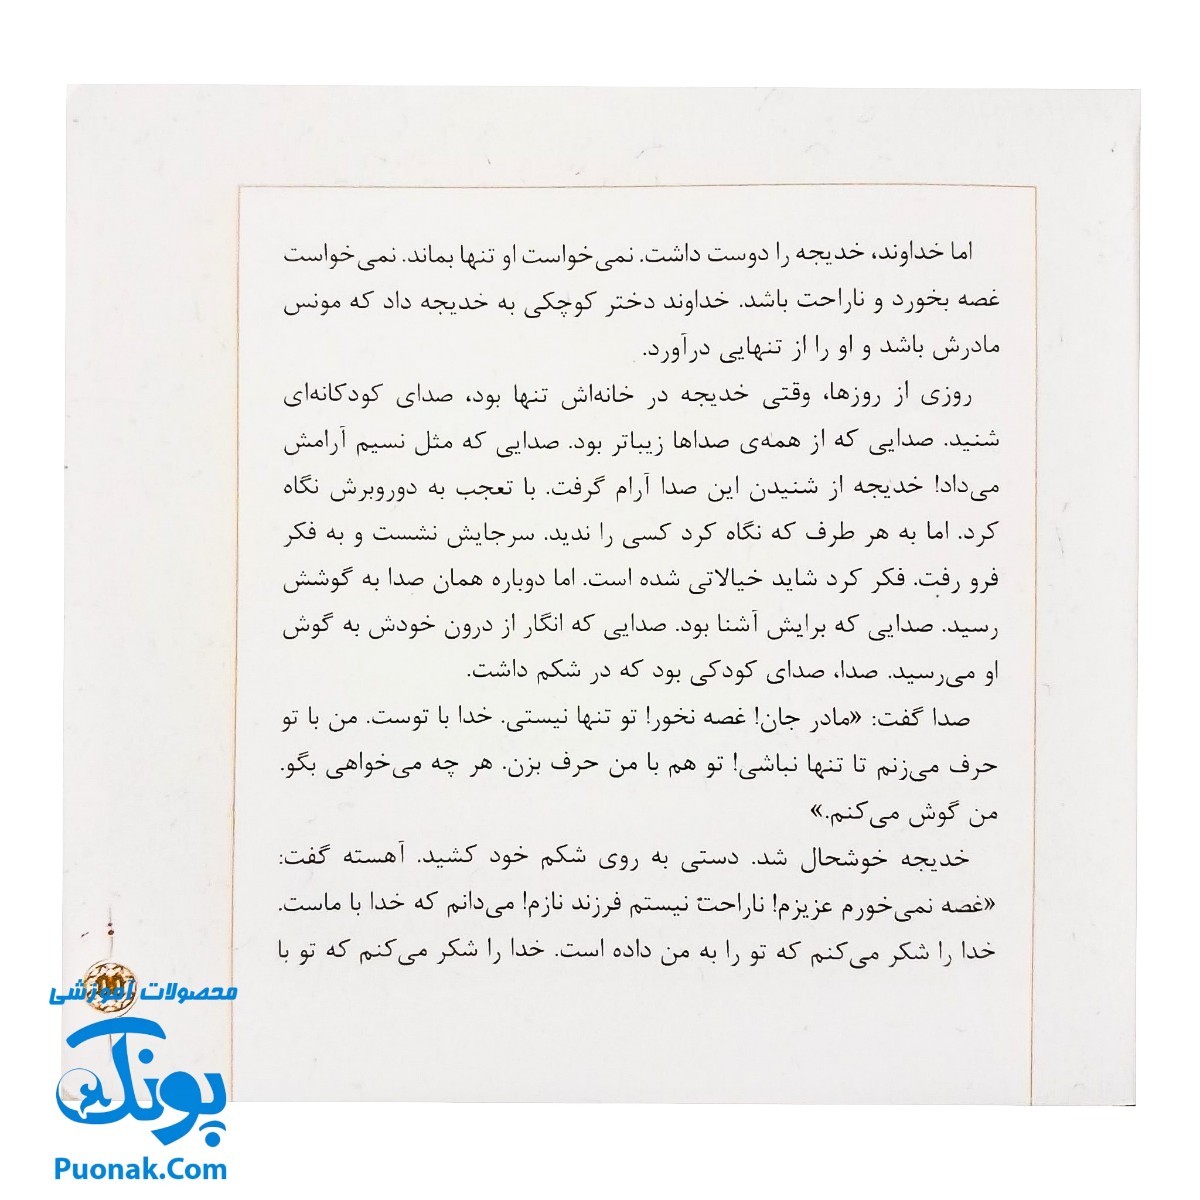 اما خداوند، خدیجه را دوست داشت. نمی‌خواست او تنها بماند. نمی‌خواست
غصه بخورد و ناراحت باشد. خداوند دختر کوچکی به خدیجه داد که مونس
مادرش باشد و او را از تنهایی درآورد.
روزی از روزها، وقتی خدیجه در خانه‌اش تنها بود، صدای کودکانه‌ای
شنید. صدایی که از همه‌ی صداها زیباتر بود. صدایی که مثل نسیم آرامش
می‌داد! خدیجه از شنیدن این صدا آرام گرفت. با تعجب به دوروبرش نگاه
کرد. اما به هر طرف که نگاه کرد کسی را ندید. سرجایش نشست و به فکر
فرو رفت. فکر کرد شاید خیالاتی شده است. اما دوباره همان صدا به گوشش
رسید. صدایی که برایش آشنا بود. صدایی که انگار از درون خودش به گوش
او می‌رسید. صدا، صدای کودکی بود که در شکم داشت.
صدا گفت: «مادر جان! غصه نخور! تو تنها نیستی. خدا با توست. من با تو
حرف می‌زنم تا تنها نباشی! تو هم با من حرف بزن. هر چه می‌خواهی بگو.
من گوش می‌کنم.»
خدیجه خوشحال شد. دستی به روی شکم خود کشید. آهسته گفت:
«غصه نمی‌خورم عزیزم! ناراحت نیستم فرزند نازم! می‌دانم که خدا با ماست.
خدا را شکر می‌کنم که تو را به من داده است. خدا را شکر می‌کنم که تو با
محصولات آموزشی
پونک
Puonak.Com